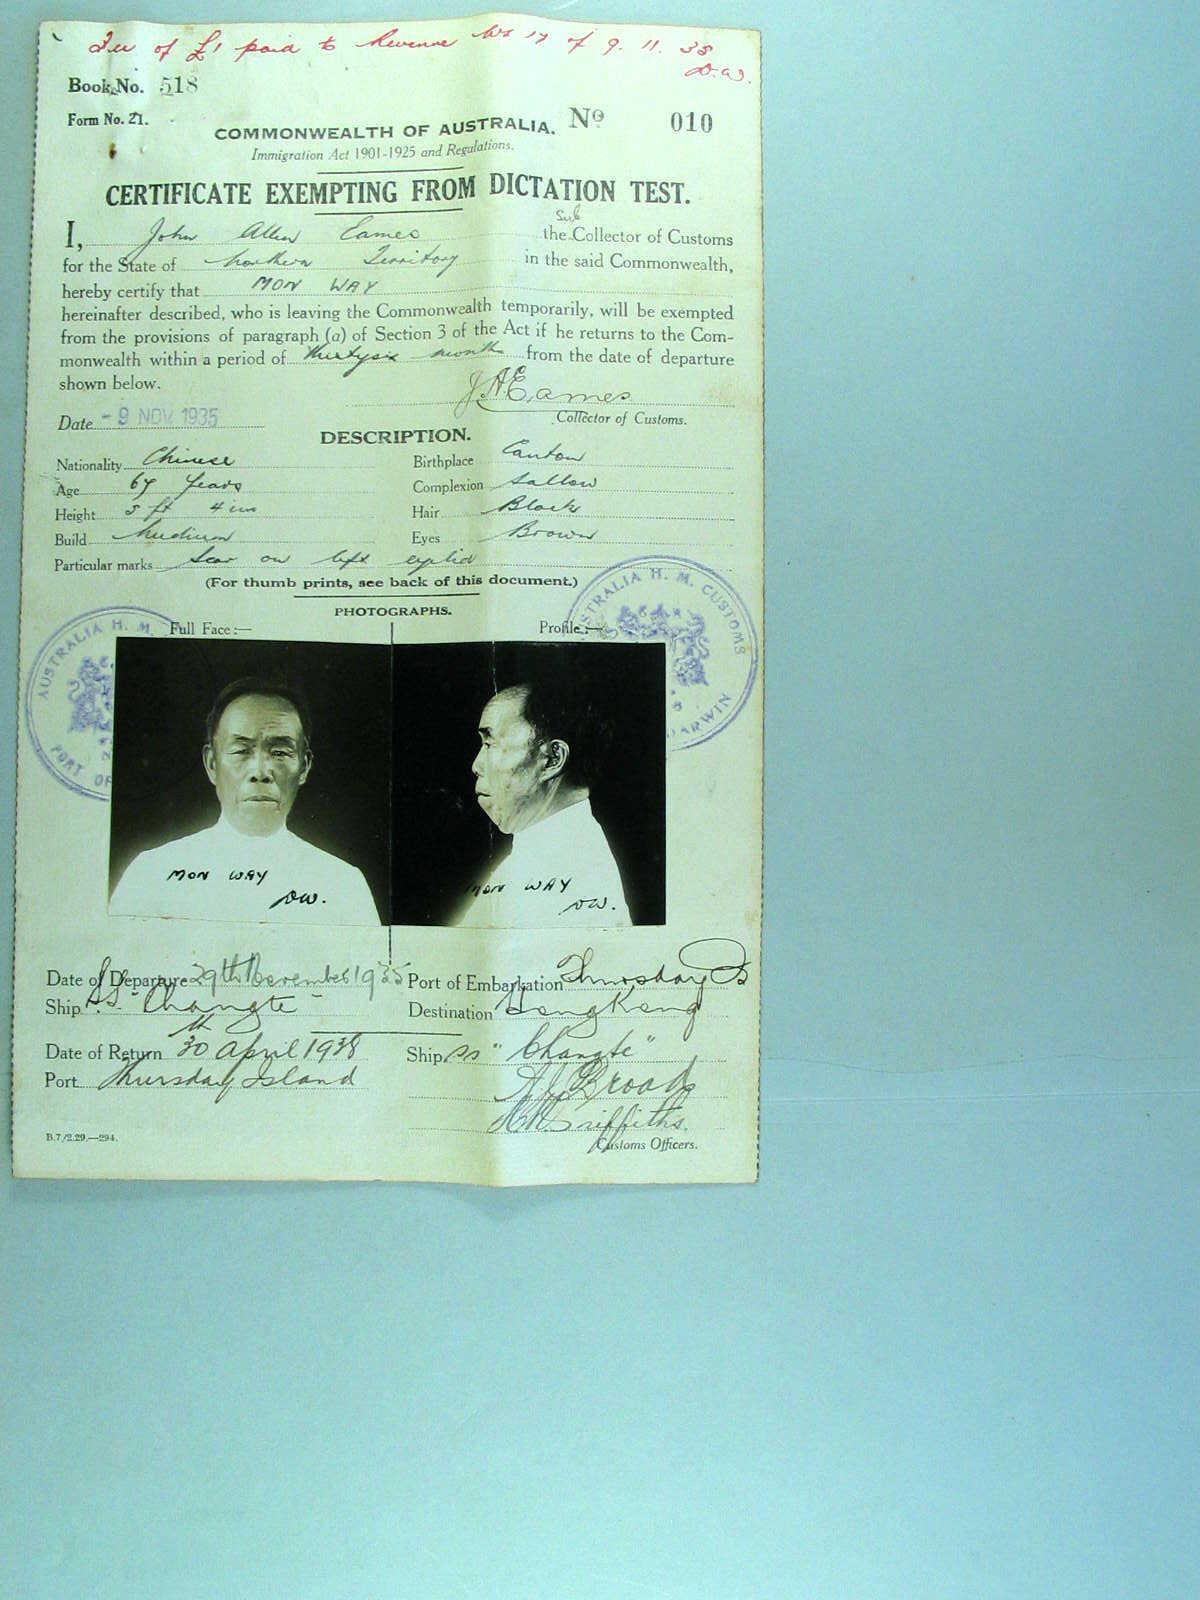 Fee of £1 paid to Revenue 17 of 9. 11. 35
D.W.
Book No. 518
Form No. 21.
No 010
COMMONWEALTH OF AUSTRALIA.
Immigration Act 1901-1925 and Regulations.
CERTIFICATE EXEMPTING FROM DICTATION TEST.
Sub
I, John Allen Eames the Collector of Customs
for the State of Northern Territory in the said Commonwealth,
hereby certify that MON WAY
hereinafter described, who is leaving the Commonwealth temporarily, will be exempted
from the provisions of paragraph (a) of Section 3 of the Act if he returns to the Com-
monwealth within a period of thirtysix months from the date of departure
shown below.
J.A.Eames
Collector of Customs.
Date - 9 NOV 1935
DESCRIPTION.
Nationality Chinese Birthplace Canton
Age 64 years Complexion Sallow
Height 5 ft 4 ins Hair Black
Build Medium Eyes Brown
Particular marks Scar on left eyelid
(For thumb prints, see back of this document.)
PHOTOGRAPHS.
Full Face:— Profile:—
AUSTRALIA H. M.
PORT OF
AUSTRALIA H. M. CUSTOMS
DARWIN
MON WAY
DW.
MON WAY
DW.
Date of Departure 29th November 1935 Port of Embarkation Thursday Is
Ship SS "Changte" Destination Hong Kong
Date of Return 30th April 1938 Ship SS "Changte"
Port Thursday Island
Griffiths.
Customs Officers.
B.7/2.29.—294.